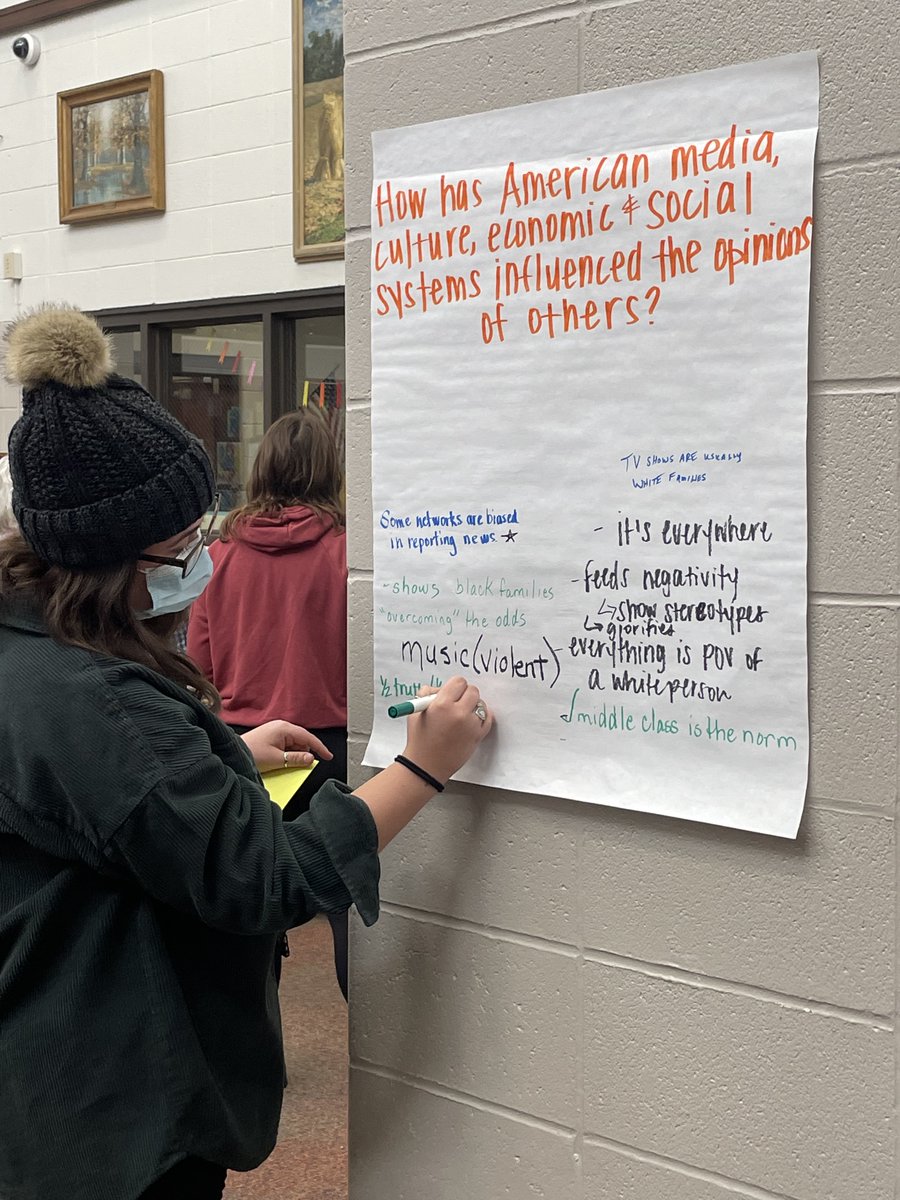 How has American media,
culture, economic & social
systems influenced the opinions
of others?
TV SHOWS ARE USUALLY
WHITE FAMILIES
Some networks are biased
in reporting news. ☆
- it's everywhere
- feeds negativity
↳ show stereotypes
↳ glorifies
- everything is POV of
a white person
√ middle class is the norm
- shows black families
"overcoming" the odds
music (violent)
1/2